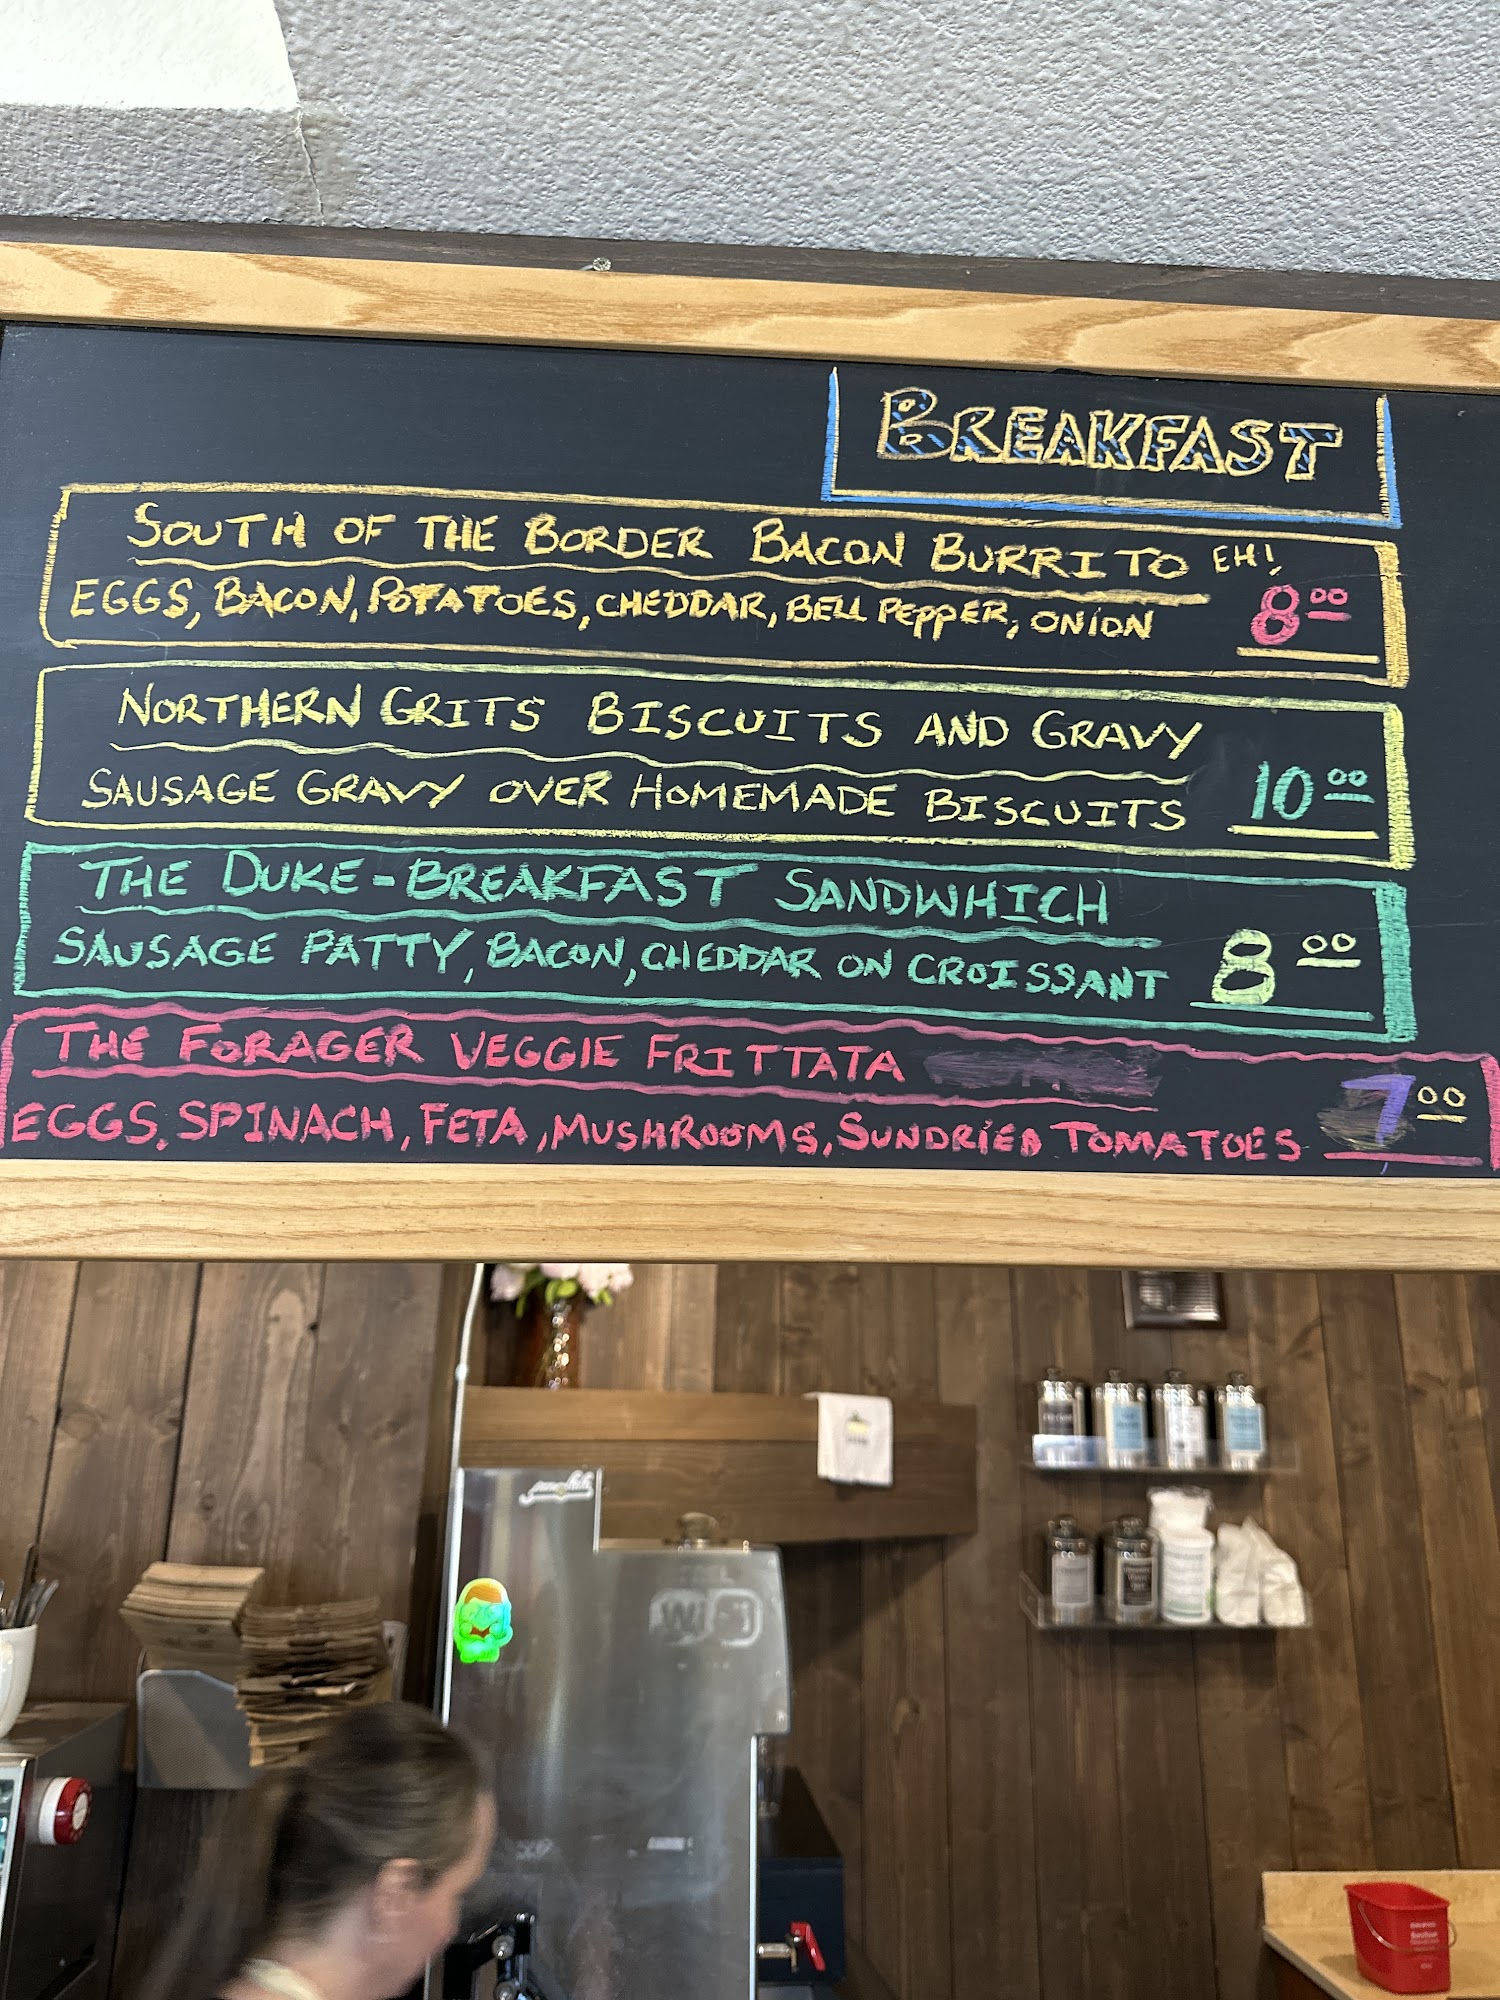 BREAKFAST
SOUTH OF THE BORDER BACON BURRITO EH!
EGGS, BACON, POTATOES, CHEDDAR, BELL PEPPER, ONION 8 00
NORTHERN GRITS BISCUITS AND GRAVY
SAUSAGE GRAVY OVER HOMEMADE BISCUITS 10 00
THE DUKE-BREAKFAST SANDWHICH
SAUSAGE PATTY, BACON, CHEDDAR ON CROISSANT 8 00
THE FORAGER VEGGIE FRITTATA
EGGS, SPINACH, FETA, MUSHROOMS, SUNDRIED TOMATOES 7 00
WiFi